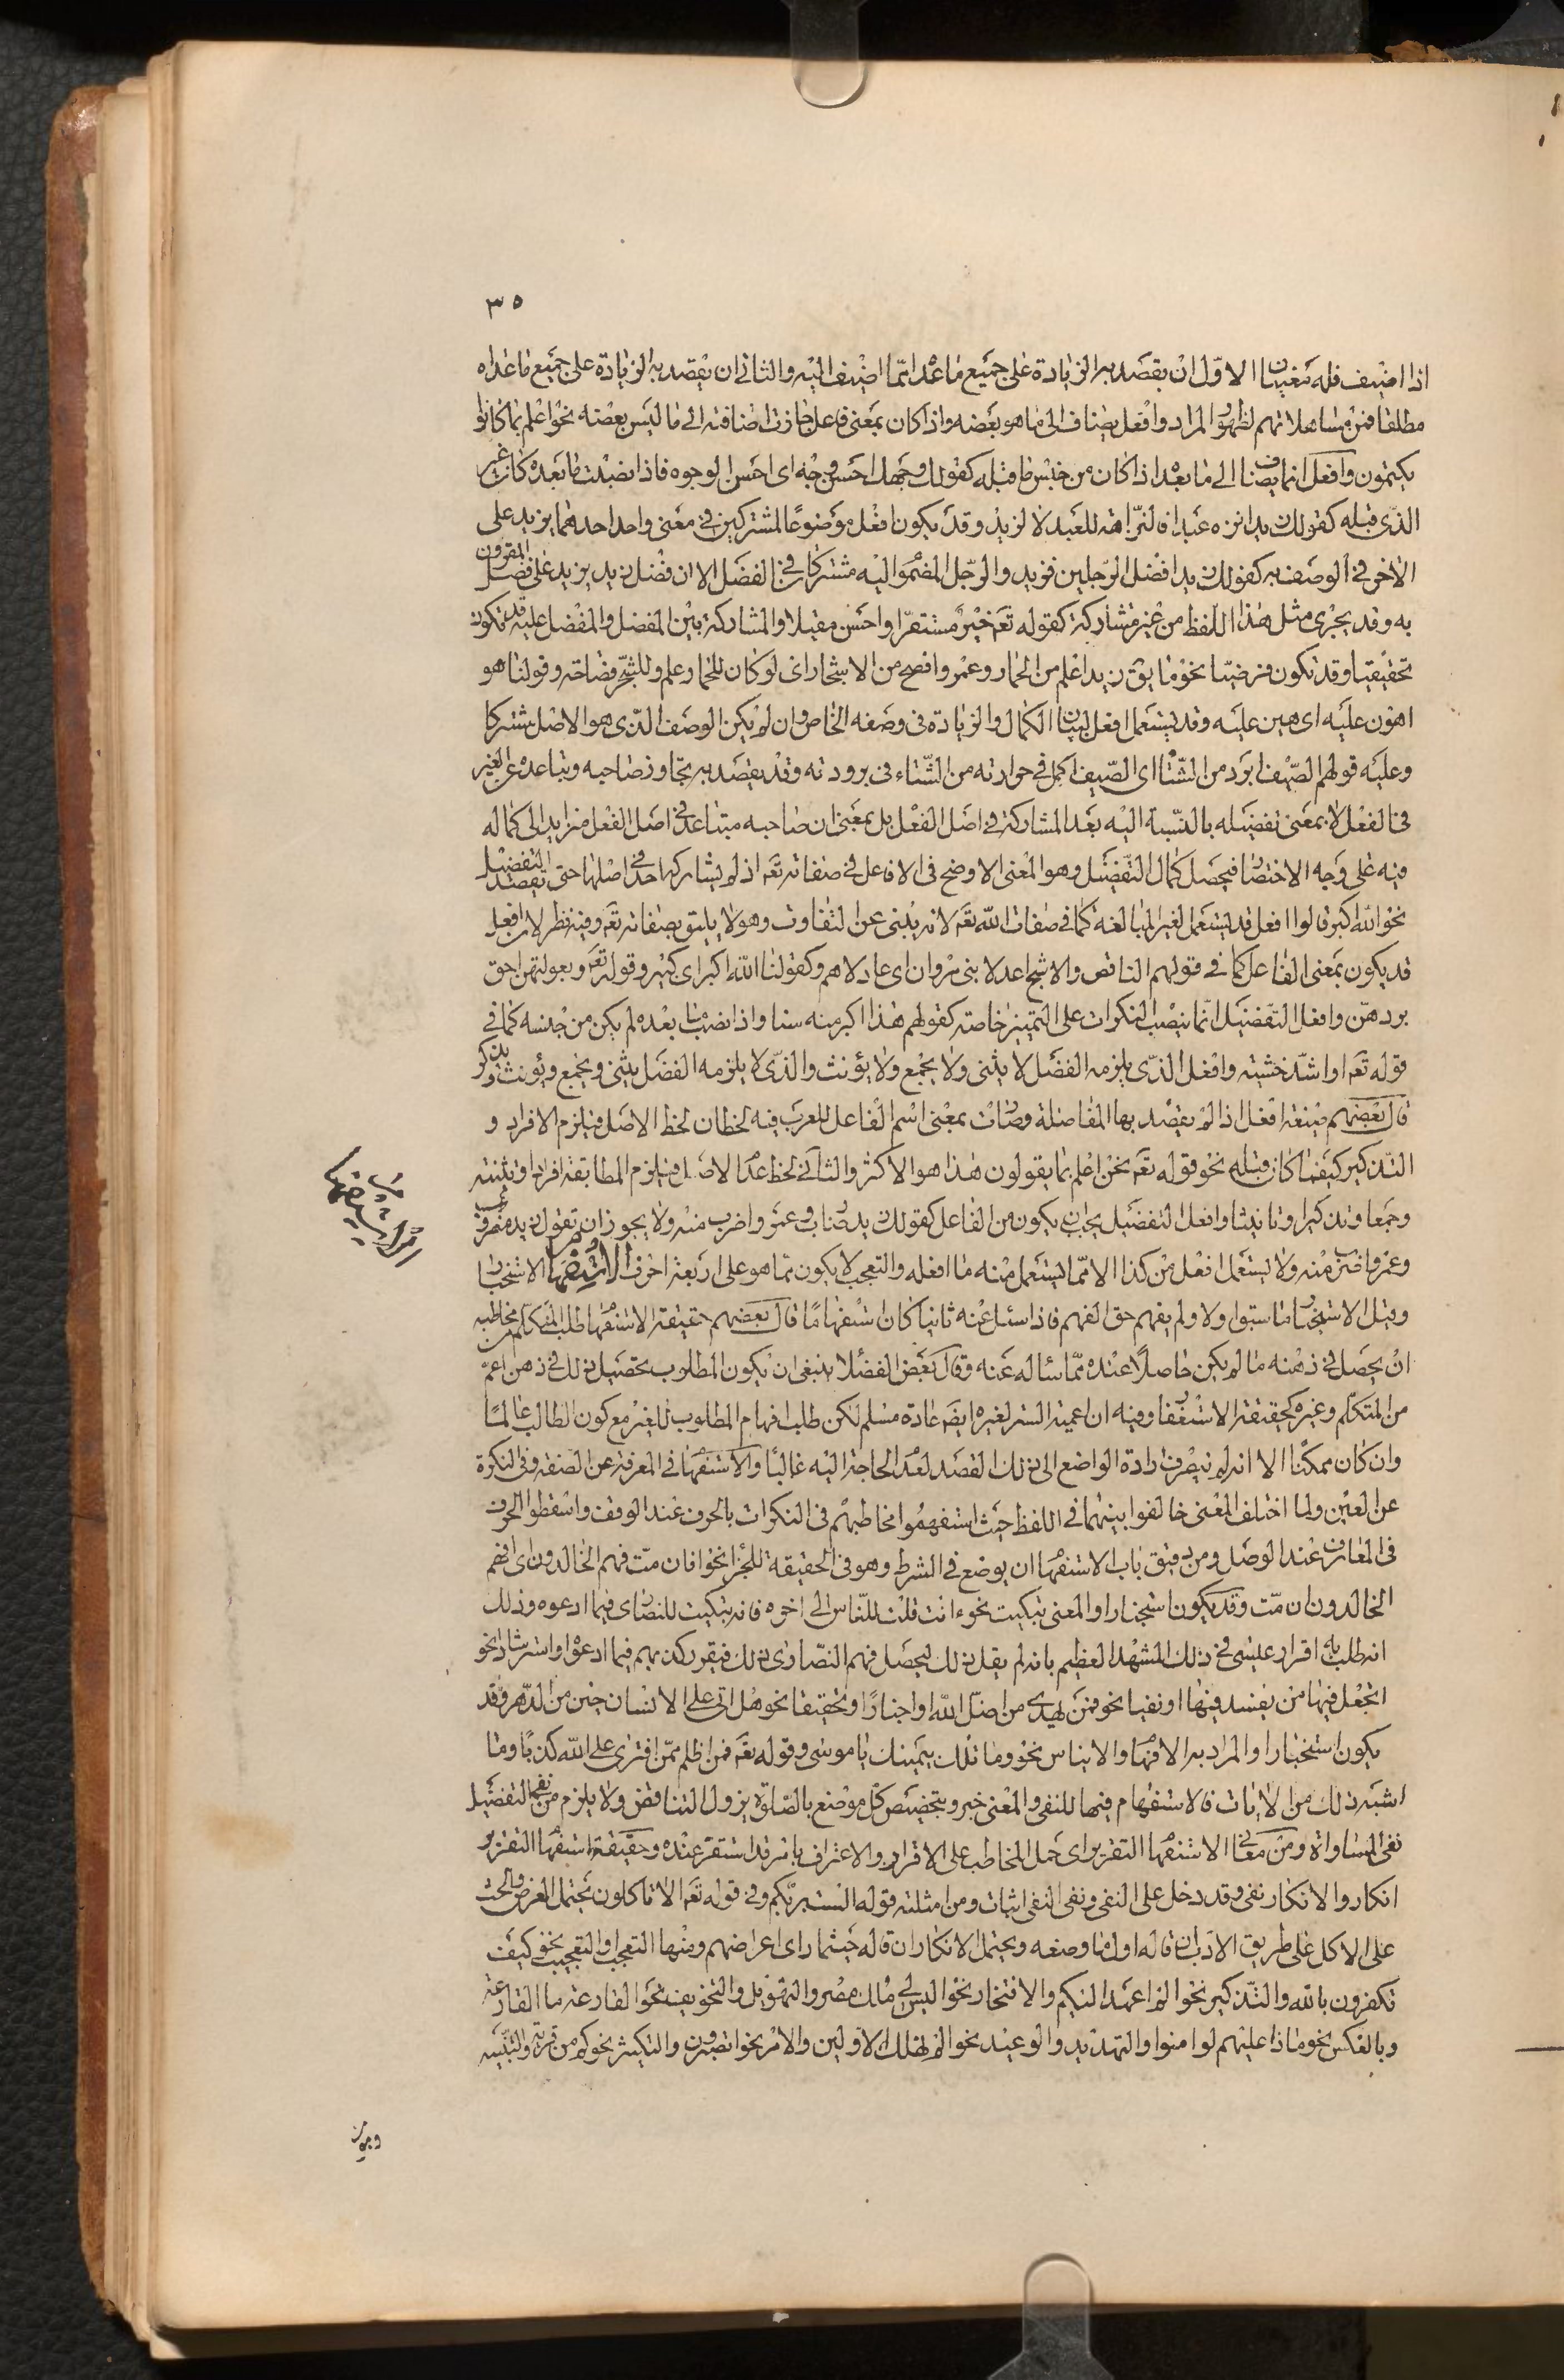 ٣٥
اذا اضيف فله معنيان الاول ان يقصد به الزيادة على جميع ما عداه مما اضيف اليه والثانى ان يقصد به الزيادة على جميع ما عداه
مطلقا فمن مساهلاتهم لظهور المراد وافعل يضاف الى ما هو بعضه واذا كان بمعنى فاعل جازت اضافته الى ما ليس بعضه نحو اعلم بما كانوا
يكتمون وافعل انما يضاف الى ما بعد اذا كان من جنس ما قبله كقولك وجهك احسن وجه اى احسن الوجوه فاذا نصبت ما بعده كان غير
الذى قبله كقولك زيد انزه عبدا فالنزاهة للعبد لا لزيد وقد يكون افعل موضوعا لمشتركين فى معنى واحد احدهما يزيد على
الاخر فى الوصف به كقولك زيد افضل الرجلين فزيد والرجل المضموم اليه مشتركان فى الفضل الا ان فضل زيد يزيد على فضل المقرون
به وقد يجرى مثل هذا اللفظ من غير مشاركة كقوله تعـ خير مستقرا واحسن مقيلا والمشاركة بين المفضل والمفضل عليه قد تكون
تحقيقيا وقد تكون فرضيا نحو ما يقـ زيد اعلم من الحمار وعمرو افصح من الاشجار اى لو كان للحمار علم وللشجر فصاحة وقولنا هو
اهون عليه اى هين عليه وقد يستعمل افعل لبيان الكمال والزيادة فى وصفه الخاص وان لم يكن الوصف الذى هو الاصل مشتركا
وعليه قولهم الصيف ابرد من الشتاء اى الصيف اكمل فى حرارته من الشتاء فى برودته وقد يقصد به تجاوز صاحبه وتباعده عن الغير
فى الفعل لا بمعنى تفضيله بالنسبة اليه بعد المشاركة فى اصل الفعل بل بمعنى ان صاحبه متباعد فى اصل الفعل متزايد الى كماله
فيه على وجه الاختصار فيحصل كمال التفضيل وهو المعنى الاوضح فى الافاعل فى صفاته تعـ اذ لم يشاركها احد فى اصلها حتى يقصد التفضيل
نحو الله اكبر قالوا افعل قد يستعمل لغير المبالغة كما فى صفات الله تعـ لانه ينبئ عن التفاوت وهو لا يليق بصفاته تعـ وفيه نظر لان افعل
قد يكون بمعنى الفاعل كما فى قولهم الناقص والاشج اعدلا بنى مروان اى عادلاهم وكقولنا الله اكبر اى كبير وقوله تعـ وبعولتهن احق
بردهن وافعل التفضيل انما ينصب النكرات على التميز خاصة كقولهم هذا اكبر منه سنا واذا نصب ما بعده لم يكن من جنسه كما فى
قوله تعـ او اشد خشية وافعل الذى يلزمه الفضل لا يثنى ولا يجمع ولا يؤنث والذى لا يلزمه الفضل يثنى ويجمع ويؤنث ويذكر
قال بعضهم صيغة افعل اذا لم يقصد بها المفاضلة وصارت بمعنى اسم الفاعل للعرب فيه لحظان لحظ الاصل فيلزم الافراد و
التذكير كيفما كان قبله نحو قوله تعـ نحن اعلم بما يقولون هذا هو الاكثر والثانى لحظ عدم الاصل فيلزم المطابقة افرادا وتثنية
وجمعا وتذكيرا وتانيثا وافعل التفضيل يجب ان يكون من الفاعل كقولك زيد ضارب وعمرو اضرب منه ولا يجوز ان تقول زيد مضروب
وعمرو اضرب منه ولا يستعمل افعل من كذا الا مما يستعمل منه ما افعله والتعجب لا يكون مما هو على اربعة احرف الاستفهام الاستخبار
وقيل الاستخبار ما سبق اولا ولم يفهم حق الفهم فاذا سئل عنه ثانيا كان استفهاما قال بعضهم حقيقة الاستفهام طلب المتكلم من مخاطبه
ان يحصل فى ذهنه ما لم يكن حاصلا عنده مما سأله عنه وقال بعض الفضلا ينبغى ان يكون المطلوب تحصيل ذلك فى ذهن اعم
من المتكلم وغيره كحقيقة الاستغفار وفيه ان اعمية الستر لغيره ايضـ عادة مسلم لكن طلب افهام المطلوب للغير مع كون الطالب عالما
وان كان ممكنا الا انه لم ينصرف ارادة الواضع الى ذلك القصد لعدم الحاجة اليه غالبا والاستفهام فى المعرفة عن الصفة وفى النكرة
عن العين ولما اختلف المعنى خالفوا بينهما فى اللفظ حيث استفهموا مخاطبهم فى النكرات بالحرف عند الوقف واسقطوا الحرف
فى المعارف عند الوصل ومن دقيق باب الاستفهام ان يوضع فى الشرط وهو فى الحقيقة للجزا نحو افان مت فهم الخالدون اى افهم
الخالدون ان مت وقد يكون استخبارا والمعنى تبكيت نحو ءانت قلت للناس الى اخره فانه تبكيت للنصارى فيما ادعوه وذلك
انه طلب به اقرار عيسى فى ذلك المشهد العظيم بانه لم يقل ذلك ليحصل فهم النصارى ذلك فيقرر كذبهم فيما ادعوا واسترشاد نحو
اتجعل فيها من يفسد فيها او نفيا نحو فمن يهدى من اضل الله او اخبارا وتحقيقا نحو هل اتى على الانسان حين من الدهر وقد
يكون استخبارا والمراد به الافهام والايناس نحو وما تلك بيمينك يا موسى وقوله تعـ فمن اظلم ممن افترى على الله كذبا وما
اشبه ذلك من الايات فالاستفهام فيها للنفى والمعنى خبر وبتخصيص كل موضع بالصلوة يزول التناقض ولا يلزم من نفى التفضيل
نفى المساواة ومن معانى الاستفهام التقرير اى حمل المخاطب على الاقرار والاعتراف بامر قد استقر عنده وحقيقة استفهام التقرير
انكار والانكار نفى وقد دخل على النفى ونفى النفى اثبات ومن امثلته قوله الست بربكم وفى قوله تعـ الا تاكلون يحتمل العرض والحث
على الاكل على طريق الادب ان قاله اول ما وضعه ويحتمل الانكار ان قاله حيثما راى اعراضهم ومنها التعجب او التعجيب نحو كيف
تكفرون بالله والتذكير نحو الم اعهد اليكم والافتخار نحو اليس لى ملك مصر والتهويل والتخويف نحو القارعة ما القارعة
وبالعكس نحو ماذا عليهم لو امنوا والتهديد والوعيد نحو الم نهلك الاولين والامر نحو اتصبرون والتكثير نحو كم من قرية والتنبيه